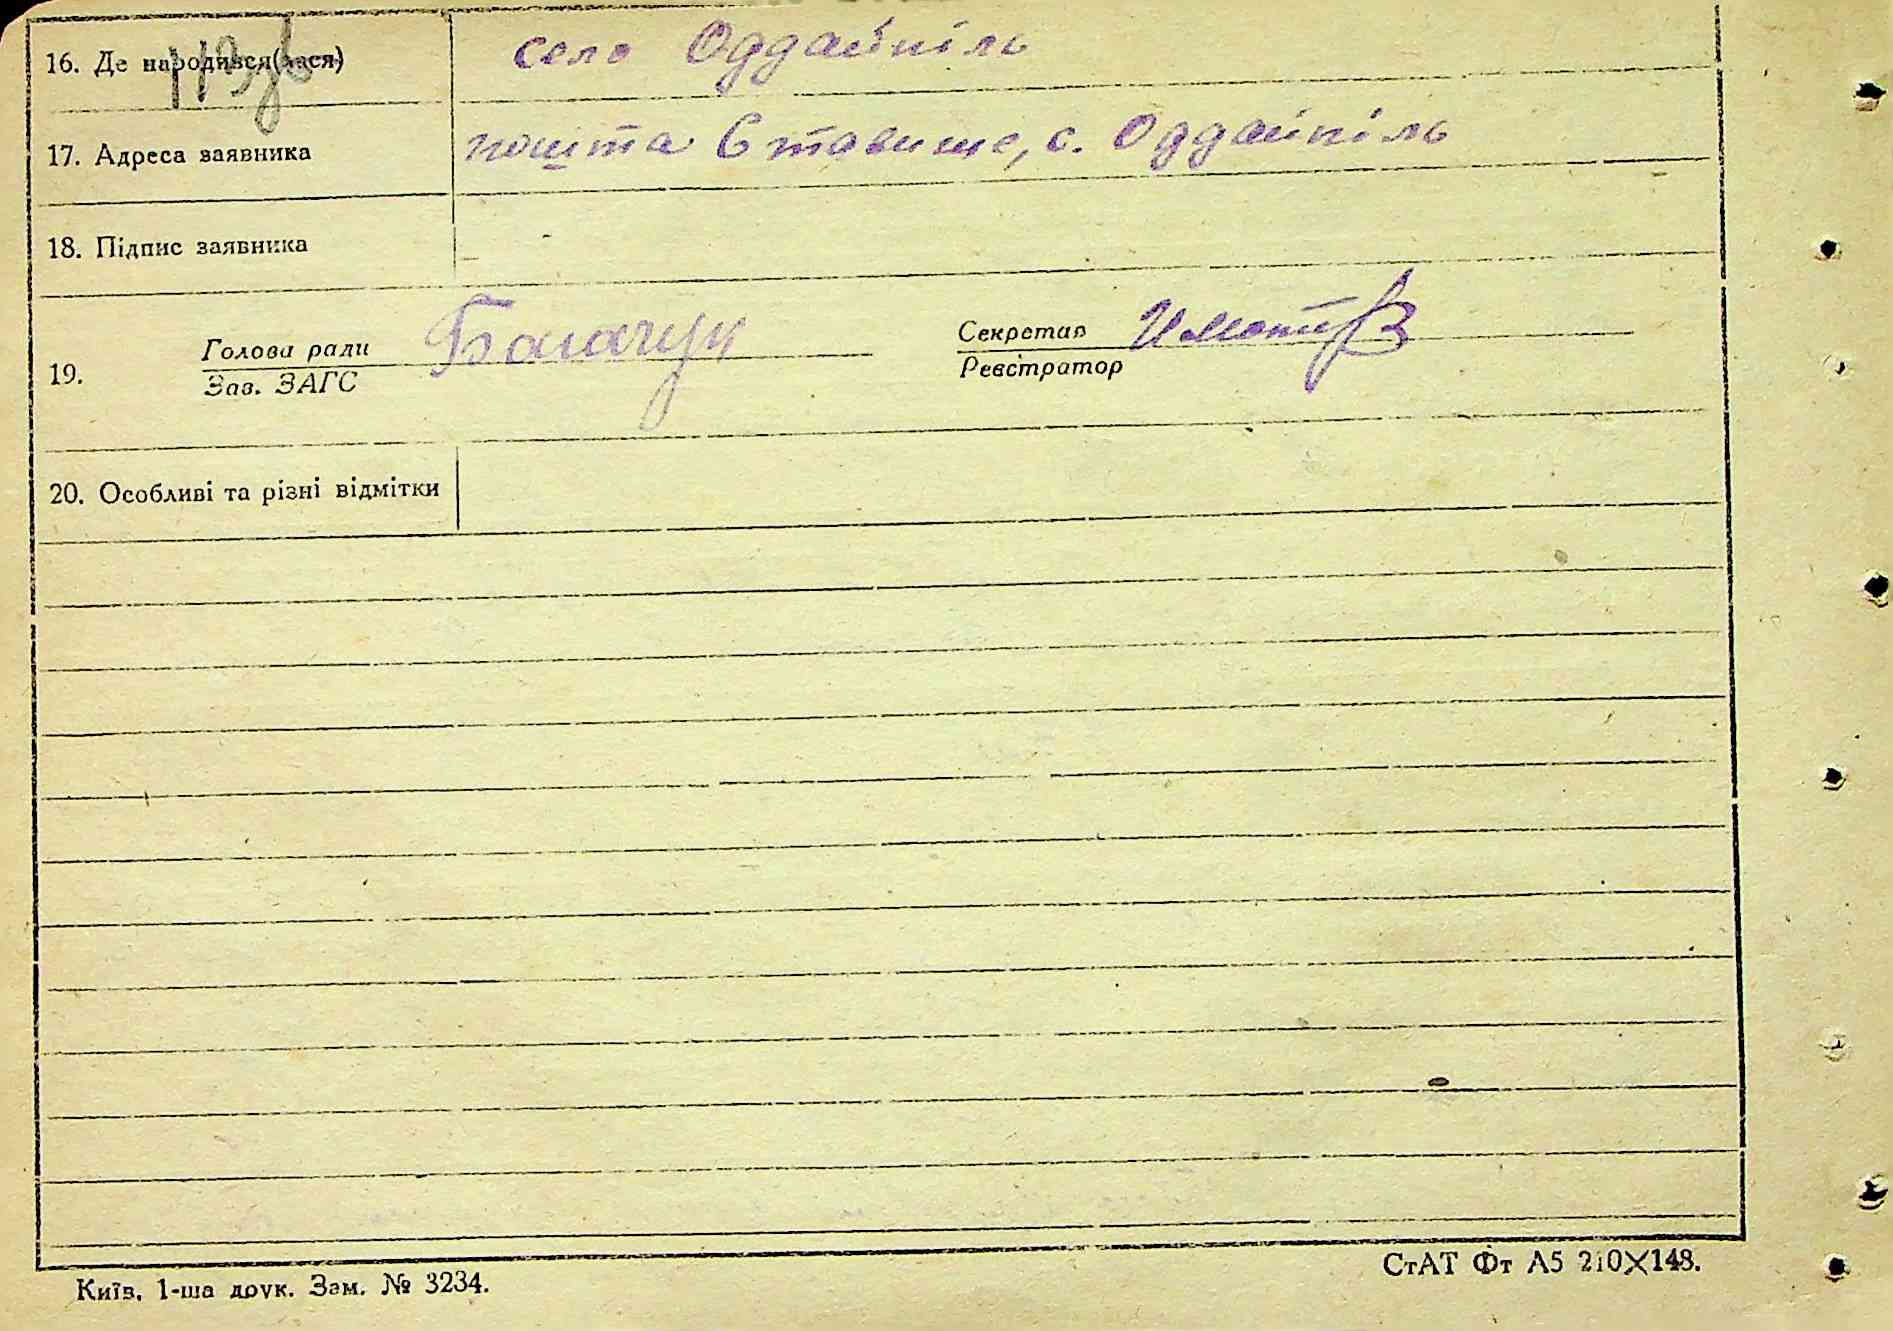 16. Де народився(лася) село Оддайпіль
17. Адреса заявника пошта Ставище, с. Оддайпіль
18. Підпис заявника -
19. Голова ради Зав. ЗАГС Богачук Секретар Реєстратор
20. Особливі та різні відмітки
Київ, 1-ша друк. Зам. № 3234.
СтАТ Фт А5 210×148.